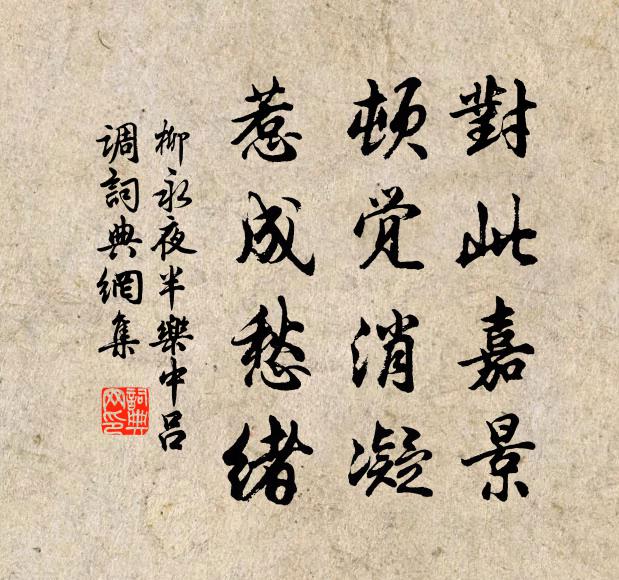 對此嘉景
顿觉消凝
惹成愁緒
柳永夜半樂中吕
调詞典網集
詞典
网印